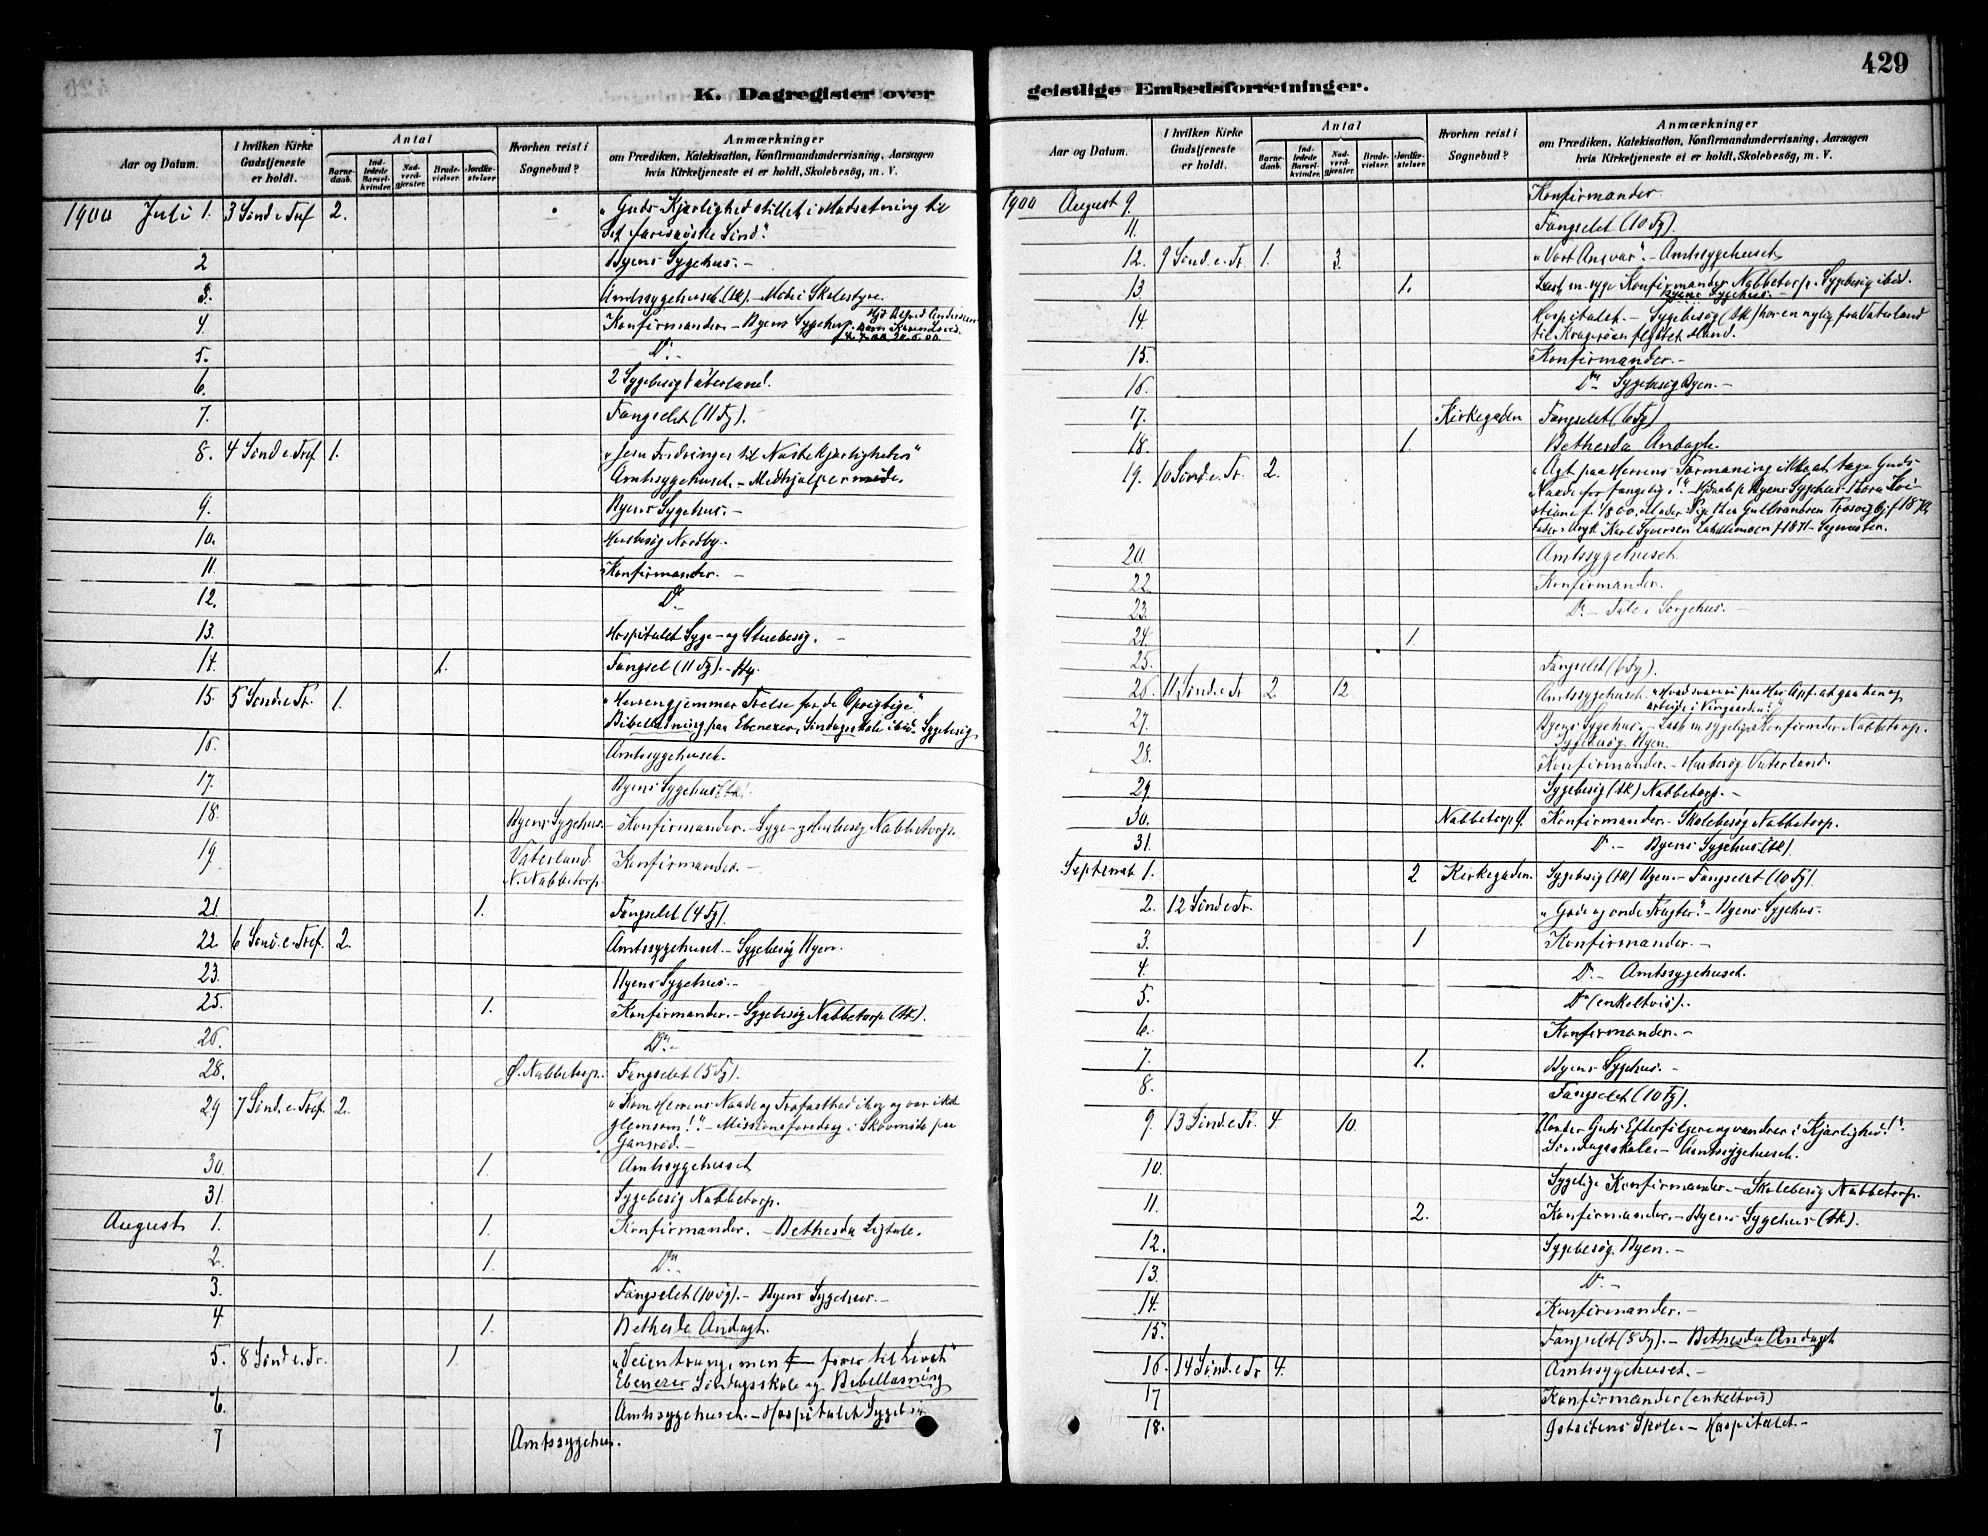 429
K. Dagregister over
geistlige Embedsforretninger.
Aar og Datum.
I hvilken Kirke Gudstjeneste er holdt.
Antal
Barne-daab.
Ind-ledede Barsel-kvinder.
Nad-verd-gjester.
Brude-vielser.
Jordfæ-stelser
Hvorhen reist i Sognebud?
Anmærkninger
om Prædiken, Katekisation, Konfirmandundervisning, Aarsagen
hvis Kirketjeneste ei er holdt, Skolebesög, m. V.
1900 Juli 1. 3 Sønd e Tref 2. "Guds Kjærlighed stillet i Modsætning til
det farisæiske Sind".
2 Byens Sygehus. -
3. Amtssygehuset (Sk). - Møde i Skolestyre.
4. Konfirmander. - Byens Sygehus.
5. Do. -
6. 2 Sygebesøg Vaterland.
7. Fængselet (11 Fg).
8. 4 Sønd e Tref 1. "Jesu Fordringer til Næstekjærligheden"
Amtssygehuset. - Medhjælpermøde.
9. Byens Sygehus. -
10. Husbesøg Nordby.
11. Konfirmander. -
12. Do
13. Hospitalet Syge- og Stuebesøg. -
14. 1. Fængsel (11 Fg). -
15. 5 Sønd e Tr. 1. "Herren gjemmer Frelse for de Oprigtige".
Bibellæsning paa Ebenezer, Søndagsskole ibid. Sygebesøg
16. Amtssygehuset.
17. Byens Sygehus (Sk).
18. Byens Sygehus. - Konfirmander. - Syge- og Husbesøg Nabbetorp.
19. Vaterland. Konfirmander. -
N. Nabbetorp.
21. 1. Fængselet (4 Fg).
22. 6 Sønd e Tref. 2. Amtssygehuset. - Sygebesøg Byen.
23. Byens Sygehus. -
25. 1. Konfirmander. - Sygebesøg Nabbetorp (Sk).
26. Do. -
28. Ø. Nabbetorp. Fængselet (5 Fg).
29 7 Sønd. e Tref. 2. "Kom Herrens Naade og Trofasthed ihu og vær ikke
glemsom!". - Missionsforedrag i Skovmøte paa
Gansrød. -
30. 1. Amtssygehuset
31. Sygebesøg Nabbetorp.
August 1. 1. Konfirmander. - Bethesda Ligtale.
2. 1. Do. -
3. Fængselet (10 Fg). - Byens Sygehus. -
4 1. Bethesda Andagt.
5. 8 Sønd e Tr. 1. "Veien trang, men fører til Livet"
Ebenezer Søndagsskole og Bibellæsning
6. Amtssygehuset. - Hospitalet Sygebesøg
7 Amtssygehus.
Aar og Datum.
I hvilken Kirke Gudstjeneste er holdt.
Antal
Barne-daab.
Ind-ledede Barsel-kvinder.
Nad-verd-gjæster.
Brude-vielser.
Jordfæ-stelser.
Hvorhen reist i Sognebud?
Anmærkninger
om Prædiken, Katekisation, Konfirmandundervisning, Aarsagen
hvis Kirketjeneste ei er holdt, Skolebesög, m. V.
1900 August 9. Konfirmander.
11. Fængselet (10 Fg).
12. 9 Sønd. e Tr. 1. 3. "Vort Ansvar". - Amtssygehuset
13. 1. Læst m. syge Konfirmander Nabbetorp. Sygebesøg ibid.
Byens Sygehus. -
14. Hospitalet. - Sygebesøg (Sk) hos en nylig fra Vaterland
til Kragerøen flyttet Mand.
15. Konfirmander. -
16. Do. - Sygebesøg Byen. -
17. Kirkegaden Fængselet (6 Fg)
18. 1. Bethesda Andagt.
19. 10 Sønd. e Tr. 2. "Agt paa Herrens Formaning ikke at tage Guds
Naade forfængelig!"
20. Amtssygehuset.
22. Konfirmander.
23. Do - Tale i Sørgehus. -
24. 1
25. Fængselet (6 Fg).
26. 11 Sønd. e Tr 2. 12 Amtssygehuset.
arbeide i Vingaarden?"
27. Byens Sygehus, - Læst m. sygelige Konfirmder Nabbetorp.
Sygebesøg Byen.
28. Konfirmander. - Husbesøg Vaterland.
29 Sygebesøg (Sk) Nabbetorp. -
30. Nabbetorp Ø. Konfirmander. - Skolebesøg Nabbetorp.
31. Do. - Byens Sygehus (Sk).
Septemb 1. 2 Kirkegaden. Sygebesøg (Sk) Byen. - Fængselet (10 Fg).
2. 12 Sønd e Tr. "Gode og onde Frugter." - Byens Sygehus.
3. 1 Konfirmander. -
4. Do. - Amtssygehuset.
5. Do (enkeltvis).
6. Konfirmander. -
7. 1. Byens Sygehus. -
8. Fængselet (10 Fg).
9. 13 Sønd. e Tr. 4 10. Vorder Guds Efterfølgere og vandrer i Kjærlighed!".
Søndagsskole. - Amtssygehuset.
10. Sygelige Konfirmander. - Skolebesøg Nabbetorp.
11. 2. Konfirmander. - Byens Sygehus (Sk).
12. Sygebesøg Byen. -
13. Do. -
14. Konfirmander. -
15. Fængselet (8 Fg). - Bethesda Andagt
16. 14 Sønd. e Tr 4. Amtssygehuset. -
17 Konfirmander (enkeltvis)
18. Østsidens Skole. - Hospitalet. -